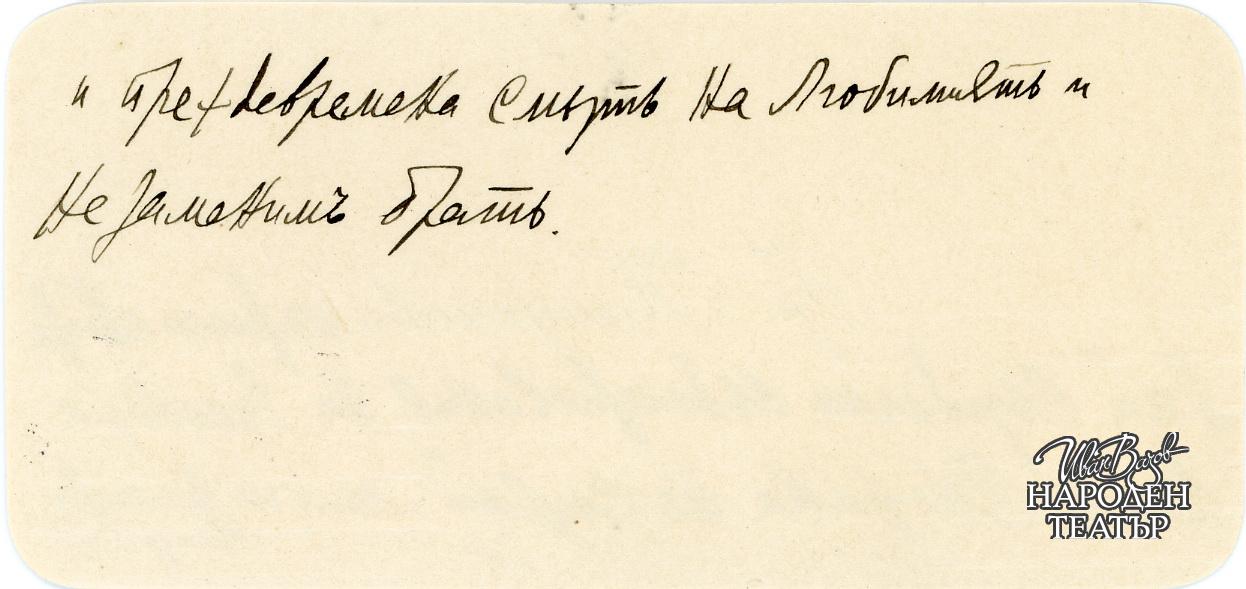 и преждевремена смърть на Любимиятъ и
незаменимъ братъ.
Иван Вазов
НАРОДЕН
ТЕАТЪР